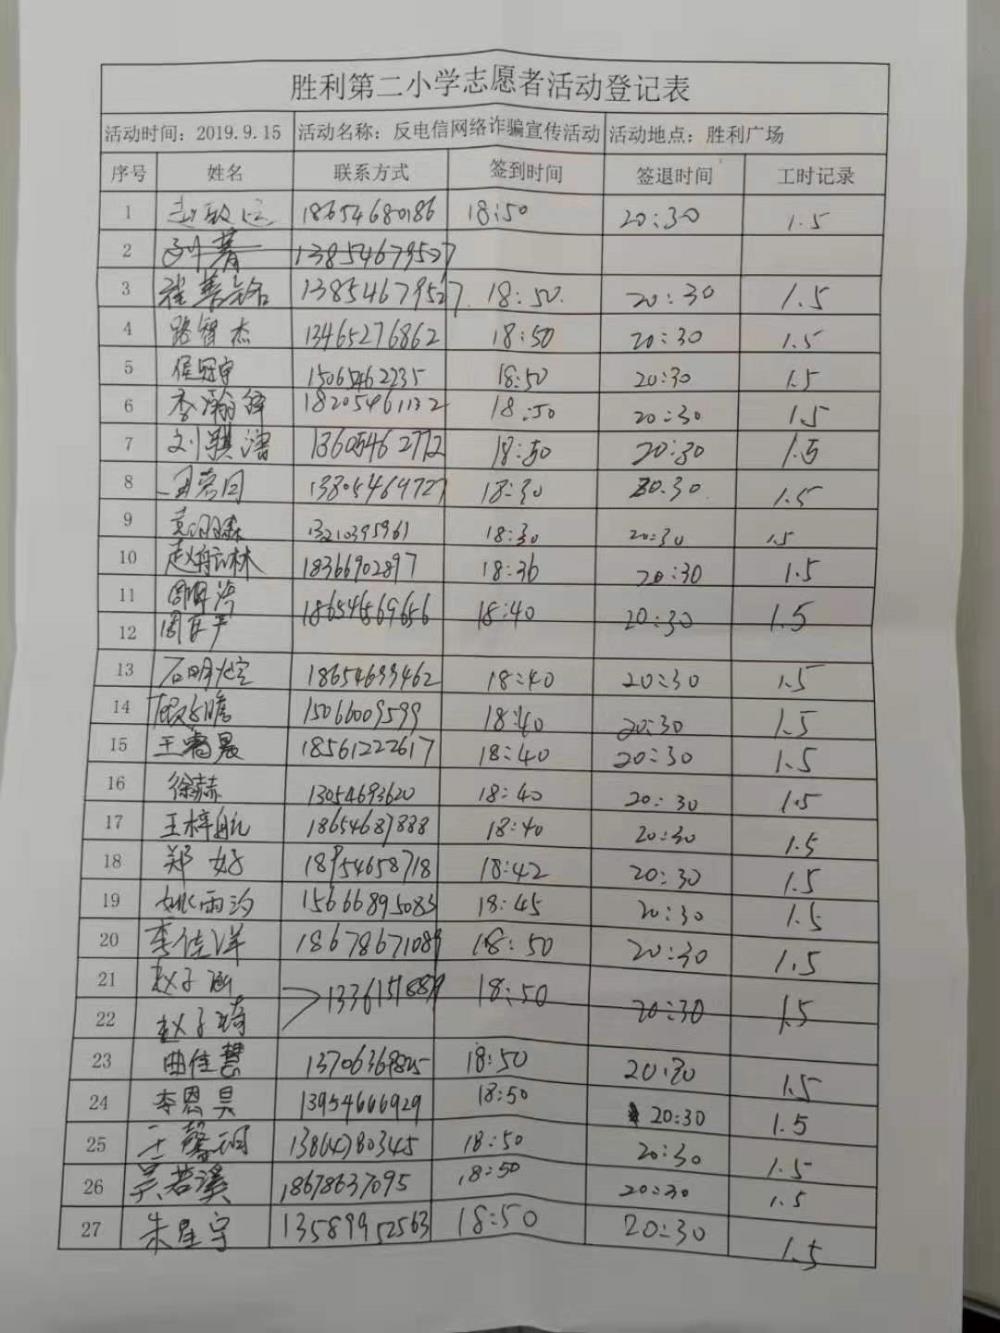 胜利第二小学志愿者活动登记表
活动时间：2019.9.15 活动名称：反电信网络诈骗宣传活动 活动地点：胜利广场
序号 姓名 联系方式 签到时间 签退时间 工时记录
1 18654680186 18:50 20:30 1.5
2 13854679527
3 13854679527 18:50 20:30 1.5
4 路智杰 13465276862 18:50 20:30 1.5
5 侯冠宇 15065462235 18:50 20:30 1.5
6 18205461132 18:50 20:30 1.5
7 刘骐 13605462772 18:50 20:30 1.5
8 18:30 20:30 1.5
9 13210395961 18:30 20:30 1.5
10 赵航林 18366902897 18:36 20:30 1.5
11 18654569656 18:40 20:30 1.5
12
13 18654699462 18:40 20:30 1.5
14 15066009599 18:40 20:30 1.5
15 王 晨 18561222617 18:40 20:30 1.5
16 徐赫 13054693620 18:40 20:30 1.5
17 王梓航 18654687888 18:40 20:30 1.5
18 郑好 18954658718 18:42 20:30 1.5
19 姚雨汐 15666895083 18:45 20:30 1.5
20 李佳洋 18678671089 18:50 20:30 1.5
21 赵子涵 18:50 20:30 1.5
22 赵子琦
23 曲佳慧 18:50 20:30 1.5
24 李恩昊 13954666929 18:50 20:30 1.5
25 王馨玥 18:50 20:30 1.5
26 吴若溪 18678637095 18:50 20:30 1.5
27 朱星宇 13589952563 18:50 20:30 1.5